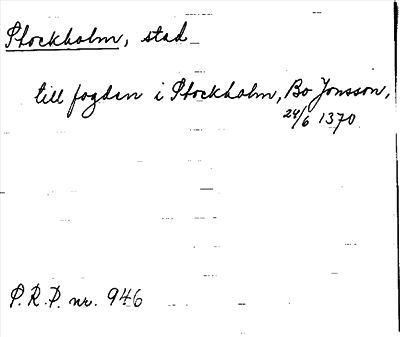 Stockholm, stad
till fogden i Stockholm, Bo Jonsson,
24/6 1370
P.R.P. nr. 946